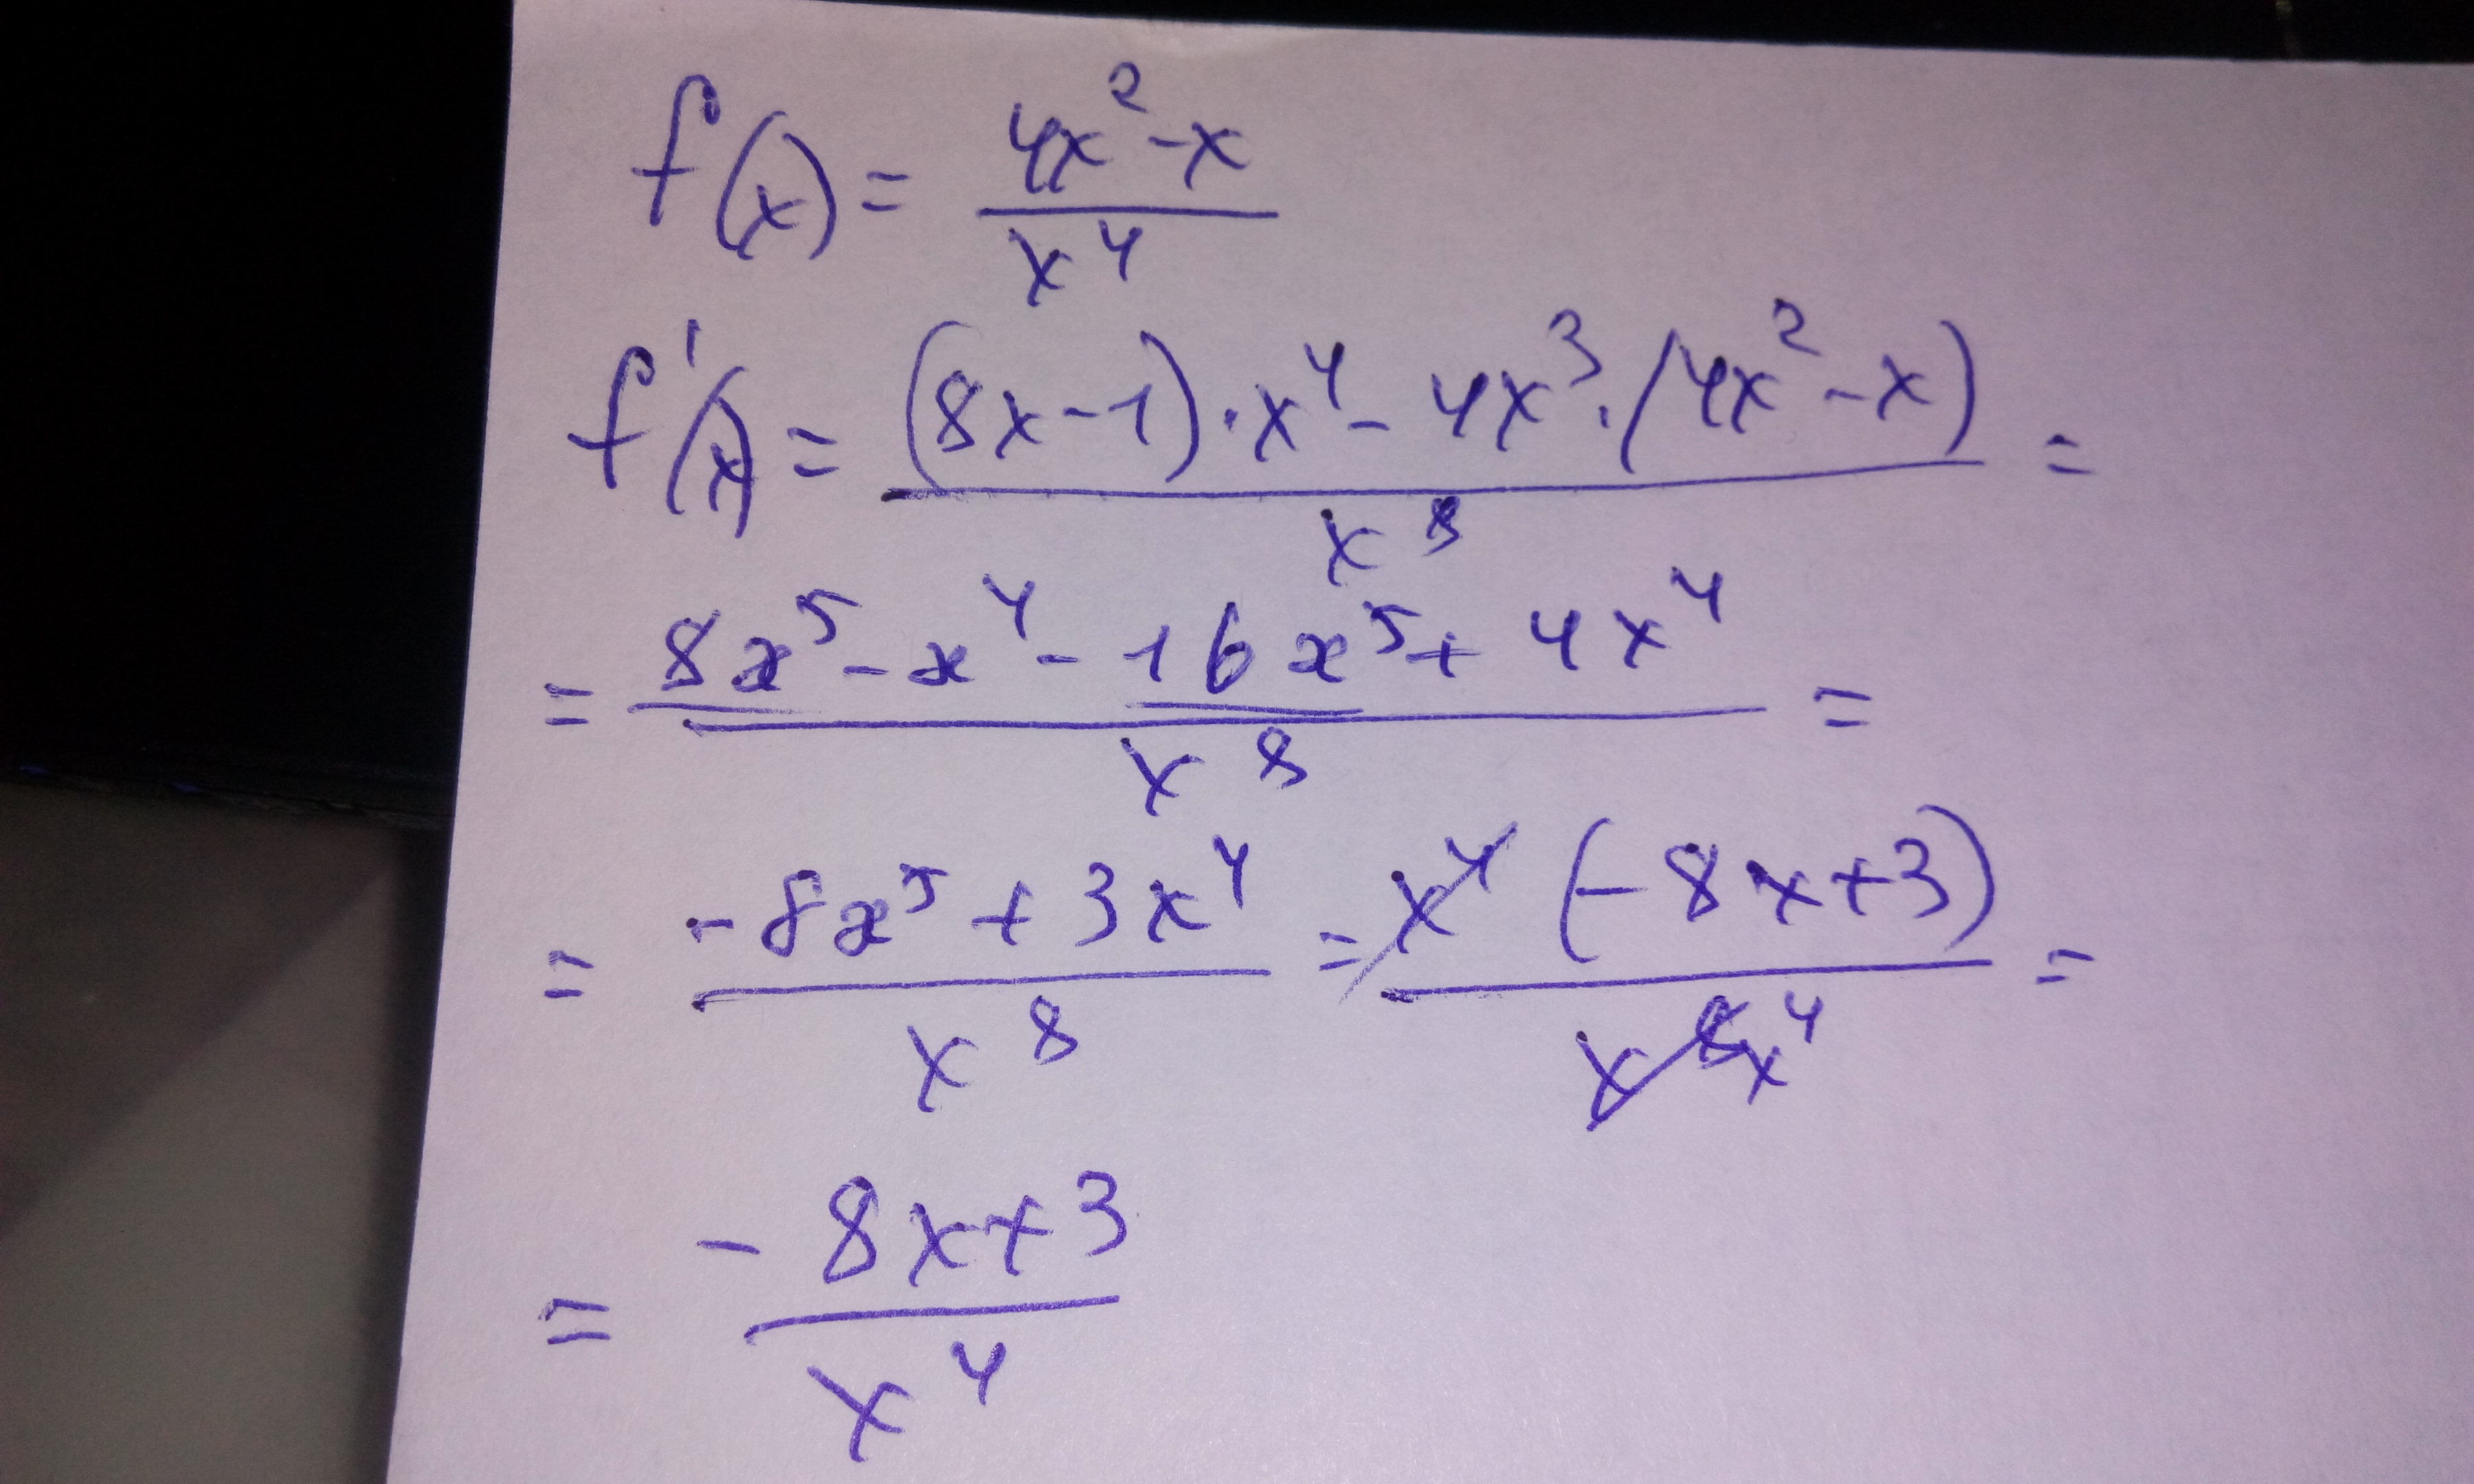 f(x) = (4x² - x) / x⁴
f'(x) = ((8x - 1) · x⁴ - 4x³ · (4x² - x)) / x⁸ =
= (8x⁵ - x⁴ - 16x⁵ + 4x⁴) / x⁸ =
= (-8x⁵ + 3x⁴) / x⁸ = x⁴ (-8x + 3) / x⁸ x⁴ =
= (-8x + 3) / x⁴